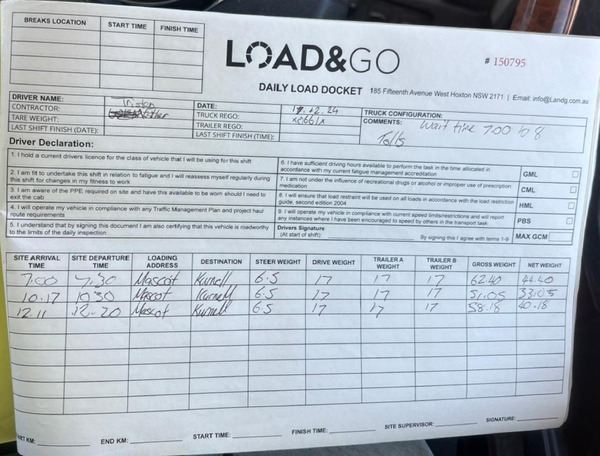 BREAKS LOCATION START TIME FINISH TIME
LOAD&GO
# 150795
DAILY LOAD DOCKET 185 Fifteenth Avenue West Hoxton NSW 2171 | Email: info@Landg.com.au
DRIVER NAME:
CONTRACTOR:
TARE WEIGHT:
LAST SHIFT FINISH (DATE):
DATE: 17.12.24
TRUCK REGO: XO661X
TRAILER REGO:
LAST SHIFT FINISH (TIME):
TRUCK CONFIGURATION:
COMMENTS: Wait time 7.00 to 8
Tolls
Driver Declaration:
1. I hold a current drivers licence for the class of vehicle that I will be using for this shift
2. I am fit to undertake this shift in relation to fatigue and I will reassess myself regularly during
this shift for changes in my fitness to work
3. I am aware of the PPE required on site and have this available to be worn should I need to
exit the cab
4. I will operate my vehicle in compliance with any Traffic Management Plan and project haul
route requirements
5. I understand that by signing this document I am also certifying that this vehicle is roadworthy
to the limits of the daily inspection
6. I have sufficient driving hours available to perform the task in the time allocated in
accordance with my current fatigue management accreditation
7. I am not under the influence of recreational drugs or alcohol or improper use of prescription
medication
8. I will ensure that load restraint will be used on all loads in accordance with the load restriction
guide, second edition 2004
9. I will operate my vehicle in compliance with current speed limits/restrictions and will report
any instances where I have been encouraged to speed by others in the transport task
Drivers Signature
(At start of shift): By signing this I agree with terms 1-9
GML
CML
HML
PBS
MAX GCM
SITE ARRIVAL TIME SITE DEPARTURE TIME LOADING ADDRESS DESTINATION STEER WEIGHT DRIVE WEIGHT TRAILER A WEIGHT TRAILER B WEIGHT GROSS WEIGHT NET WEIGHT
7.00 7.30 Mascot Kurnell 6.5 17 17 17 62.40 44.40
10.17 10.30 Mascot Kurnell 6.5 17 17 17 51.05 33.05
12.11 12.20 Mascot Kurnell 6.5 17 17 17 58.18 40.18
KM: END KM: START TIME: FINISH TIME: SITE SUPERVISOR: SIGNATURE: